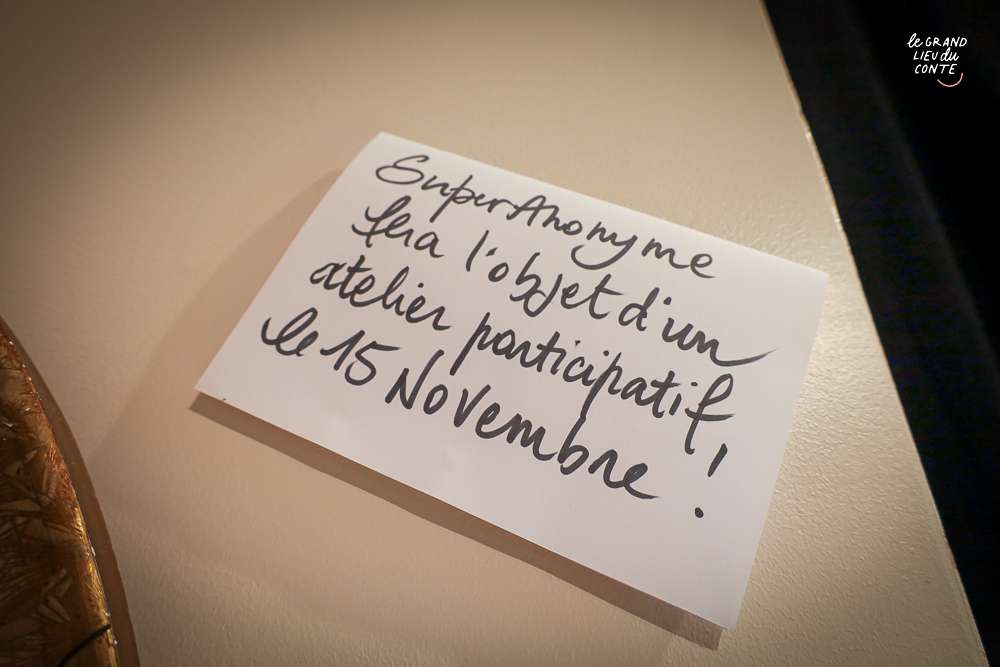 SuperAnonyme
fera l'objet d'un
atelier participatif,
le 15 Novembre !
le GRAND
LIEU du
CONTE